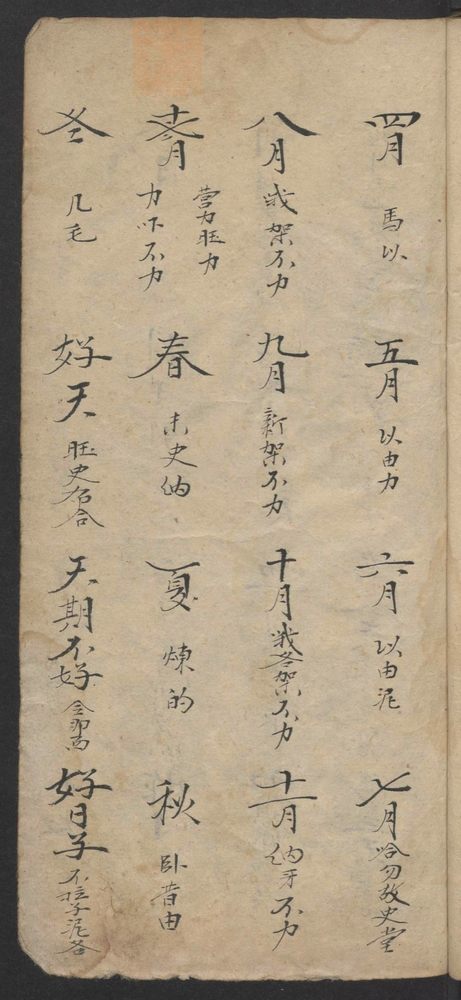 四月 馬以 五月 以由力 六月 以由泥 七月 哈勿放史堂
八月 或架不力 九月 新架不力 十月 架不力 十一月 纳牙不力
十二月 营力旺力 力吓不力 春 未史纳 夏 煉的 秋 卧昔由
冬 几毛 好天 旺史合 天期不好 好日子 不子泥各